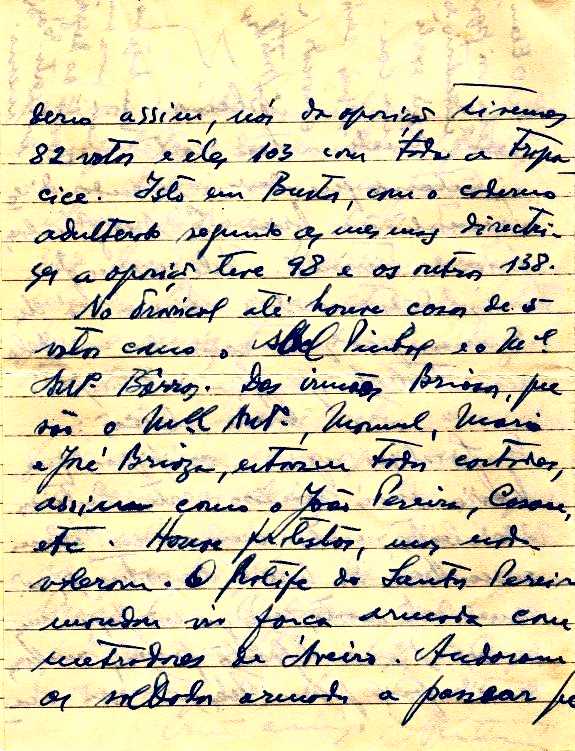 derno assim, nós da oposição tivemos
82 votos e êles 103 com toda a trapa-
cice. Isto em Bustos, com o caderno
adulterado segundo as mesmas directri-
zes a oposição teve 98 e os outros 138.
No até houve casos de 5
votos como o Abel Pinhal e o Mel.
Antº Barros. Dos irmãos Briosa, que
são o Mel Antº, Manuel, Mario
e José Brioza, estavam todos cortados,
assim como o João Pereira,
etc. Houve protestos, mas nada
valeram. O do Santos Pereira
mandou vir força armada com
metradores de Aveiro. Andaram
os soldados armados a passear pe